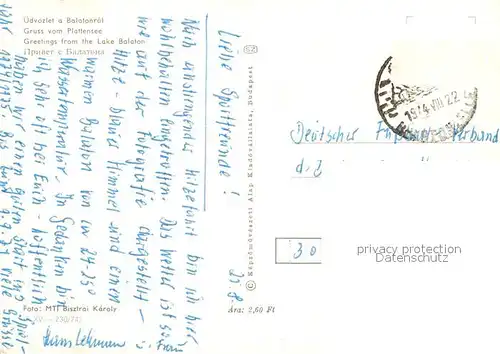 Üdvözlet a Balatonról
Gruss vom Plattensee
Greetings from the Lake Balaton
Привет с Балатона
Liebe Sportfreunde!
Nach anstrengender Hitzefahrt bin ich hier
wohlbehalten eingetroffen. Das Wetter ist so
wie auf der Fotografie dargestellt –
Hitze – blauer Himmel und einen
warmen Balaton von ca 24-25°
Wassertemperatur. In Gedanken bin
ich sehr oft bei Euch – hoffentlich
haben wir einen guten Start ins Spiel-
jahr 1974/75. Bis zum 9.9.74 viele Grüsse
Hans Lehmann u. Frau
Foto: MTI Bisztrai Károly
XV. – 230/742
© Képzőművészeti Alap Kiadóvállalata, Budapest
Ára: 2,60 Ft
1974 VIII 22
Deutscher Fußball Verband
d. D
30
privacy protection
Veremundo DE